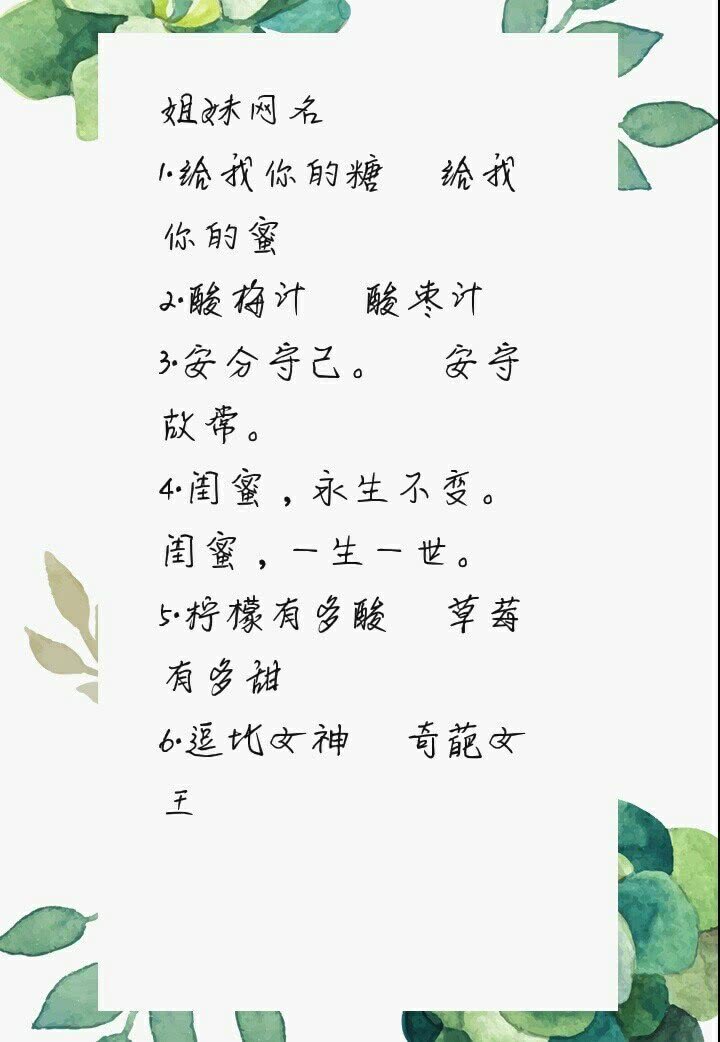 姐妹网名
1.给我你的糖 给我
你的蜜
2.酸梅汁 酸枣汁
3.安分守己。 安守
故常。
4.闺蜜，永生不变。
闺蜜，一生一世。
5.柠檬有多酸 草莓
有多甜
6.逗比女神 奇葩女
王